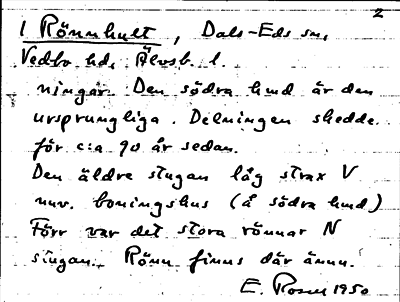 2
1 Rönnhult, Dals-Eds sn,
Vedbo hd, Älvsb. l.
ningar. Den södra hmd är den
ursprungliga. Delningen skedde
för c:a 90 år sedan.
Den äldre stugan låg strax V
nuv. boningshus (å södra hmd)
Förr var det stora rönnar N
stugan. Rönn finns där ännu.
E. Rosén 1950